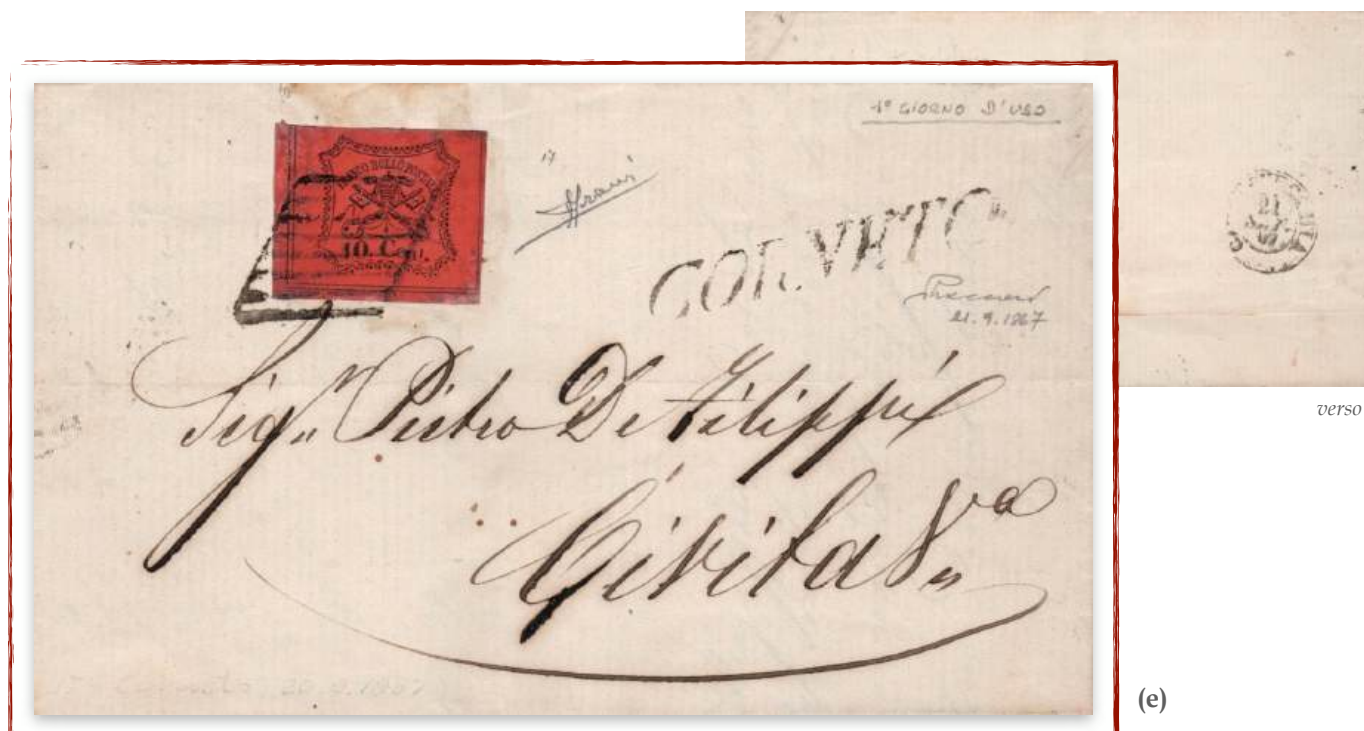 1º GIORNO D'USO
FRANCO BOLLO POSTALE
10. Cent.
CORNETO
21.9.1867
Sigʳ Pietro De Filippi
Civita Vᵃ
21
SET
67
verso
(e)